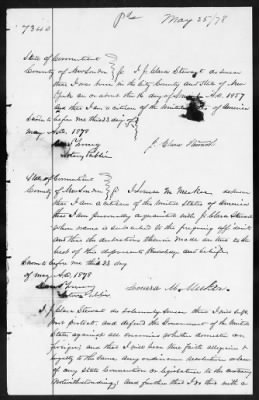 7340
May 25/78
State of Connecticut
County of New London } I J Clara Stewart do swear
that I was born in the City County and State of New
York on or about the day of A.D. 1857
and that I am a citizen of the United States of America
Sworn to before me this 23 day of
May A.D. 1878
Notary Public
J. Clara Stewart
State of Connecticut
County of New London } I Louisa M. Meeker do swear
that I am a citizen of the United States of America
that I am personally acquainted with J. Clara Stewart
whose name is subscribed to the foregoing affidavit
and that the declarations therein made are true to the
best of this deponents knowledge and belief
Sworn to before me this 23 day
of May A.D. 1878
Notary Public
Louisa M. Meeker
I J. Clara Stewart do solemnly swear that I will sup
port protect, and defend the Government of the United
States against all enemies whether domestic or
foreign; and that I will bear true faith allegiance and
loyalty to the same. Any ordinance resolution or law
of any State Convention or legislature to the contrary
notwithstanding; and further that I do this with a